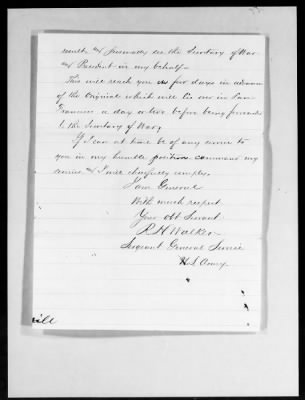 results & personally see the Secretary of War
& President in my behalf—
This will reach you a few days in advance
of the Original which will lie over in San
Francisco a day or two before being forwarded
to the Secretary of War,
If I can at time be of any service to
you in my humble position command my
service & I will cheerfully comply.
I am General
With much respect
Your obt Servant
R H Walker
Sergeant General Service
U.S. Army.